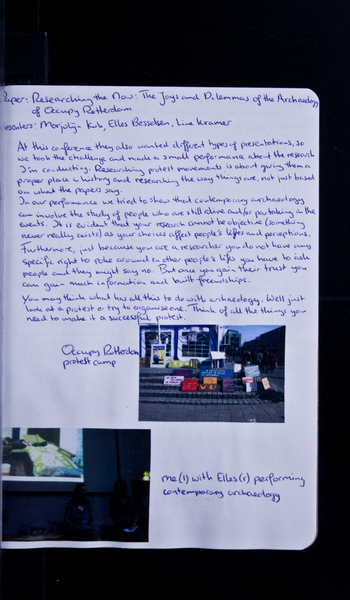 Paper: Researching the Now: The Joys and Dilemmas of the Archaeology
of Occupy Rotterdam
Presenters: Marjolijn Kok, Elles Besselsen, Line Kramer
At this conference they also wanted different types of presentations, so
we took the challenge and made a small performance about the research
I'm conducting. Researching protest movements is about giving them a
proper place in history and researching the way things are, not just based
on what the papers say.
In our performance we tried to show that contemporary archaeology
can involve the study of people who are still alive and/or partaking in the
events. It is evident that your research cannot be objective (something
never really exits) as your choices affect people's lifes and perceptions.
Furthermore, just because you are a researcher you do not have any
specific right to poke around in other people's lifes you have to ask
people and they might say no. But once you gain their trust you
can gain much information and built friendships.
You may think what has all this to do with archaeology. Well just
look at a protest or try to organise one. Think of all the things you
need to make it a successful protest.
Occupy Rotterdam
protest camp
me (l) with Elles (r) performing
contemporary archaeology